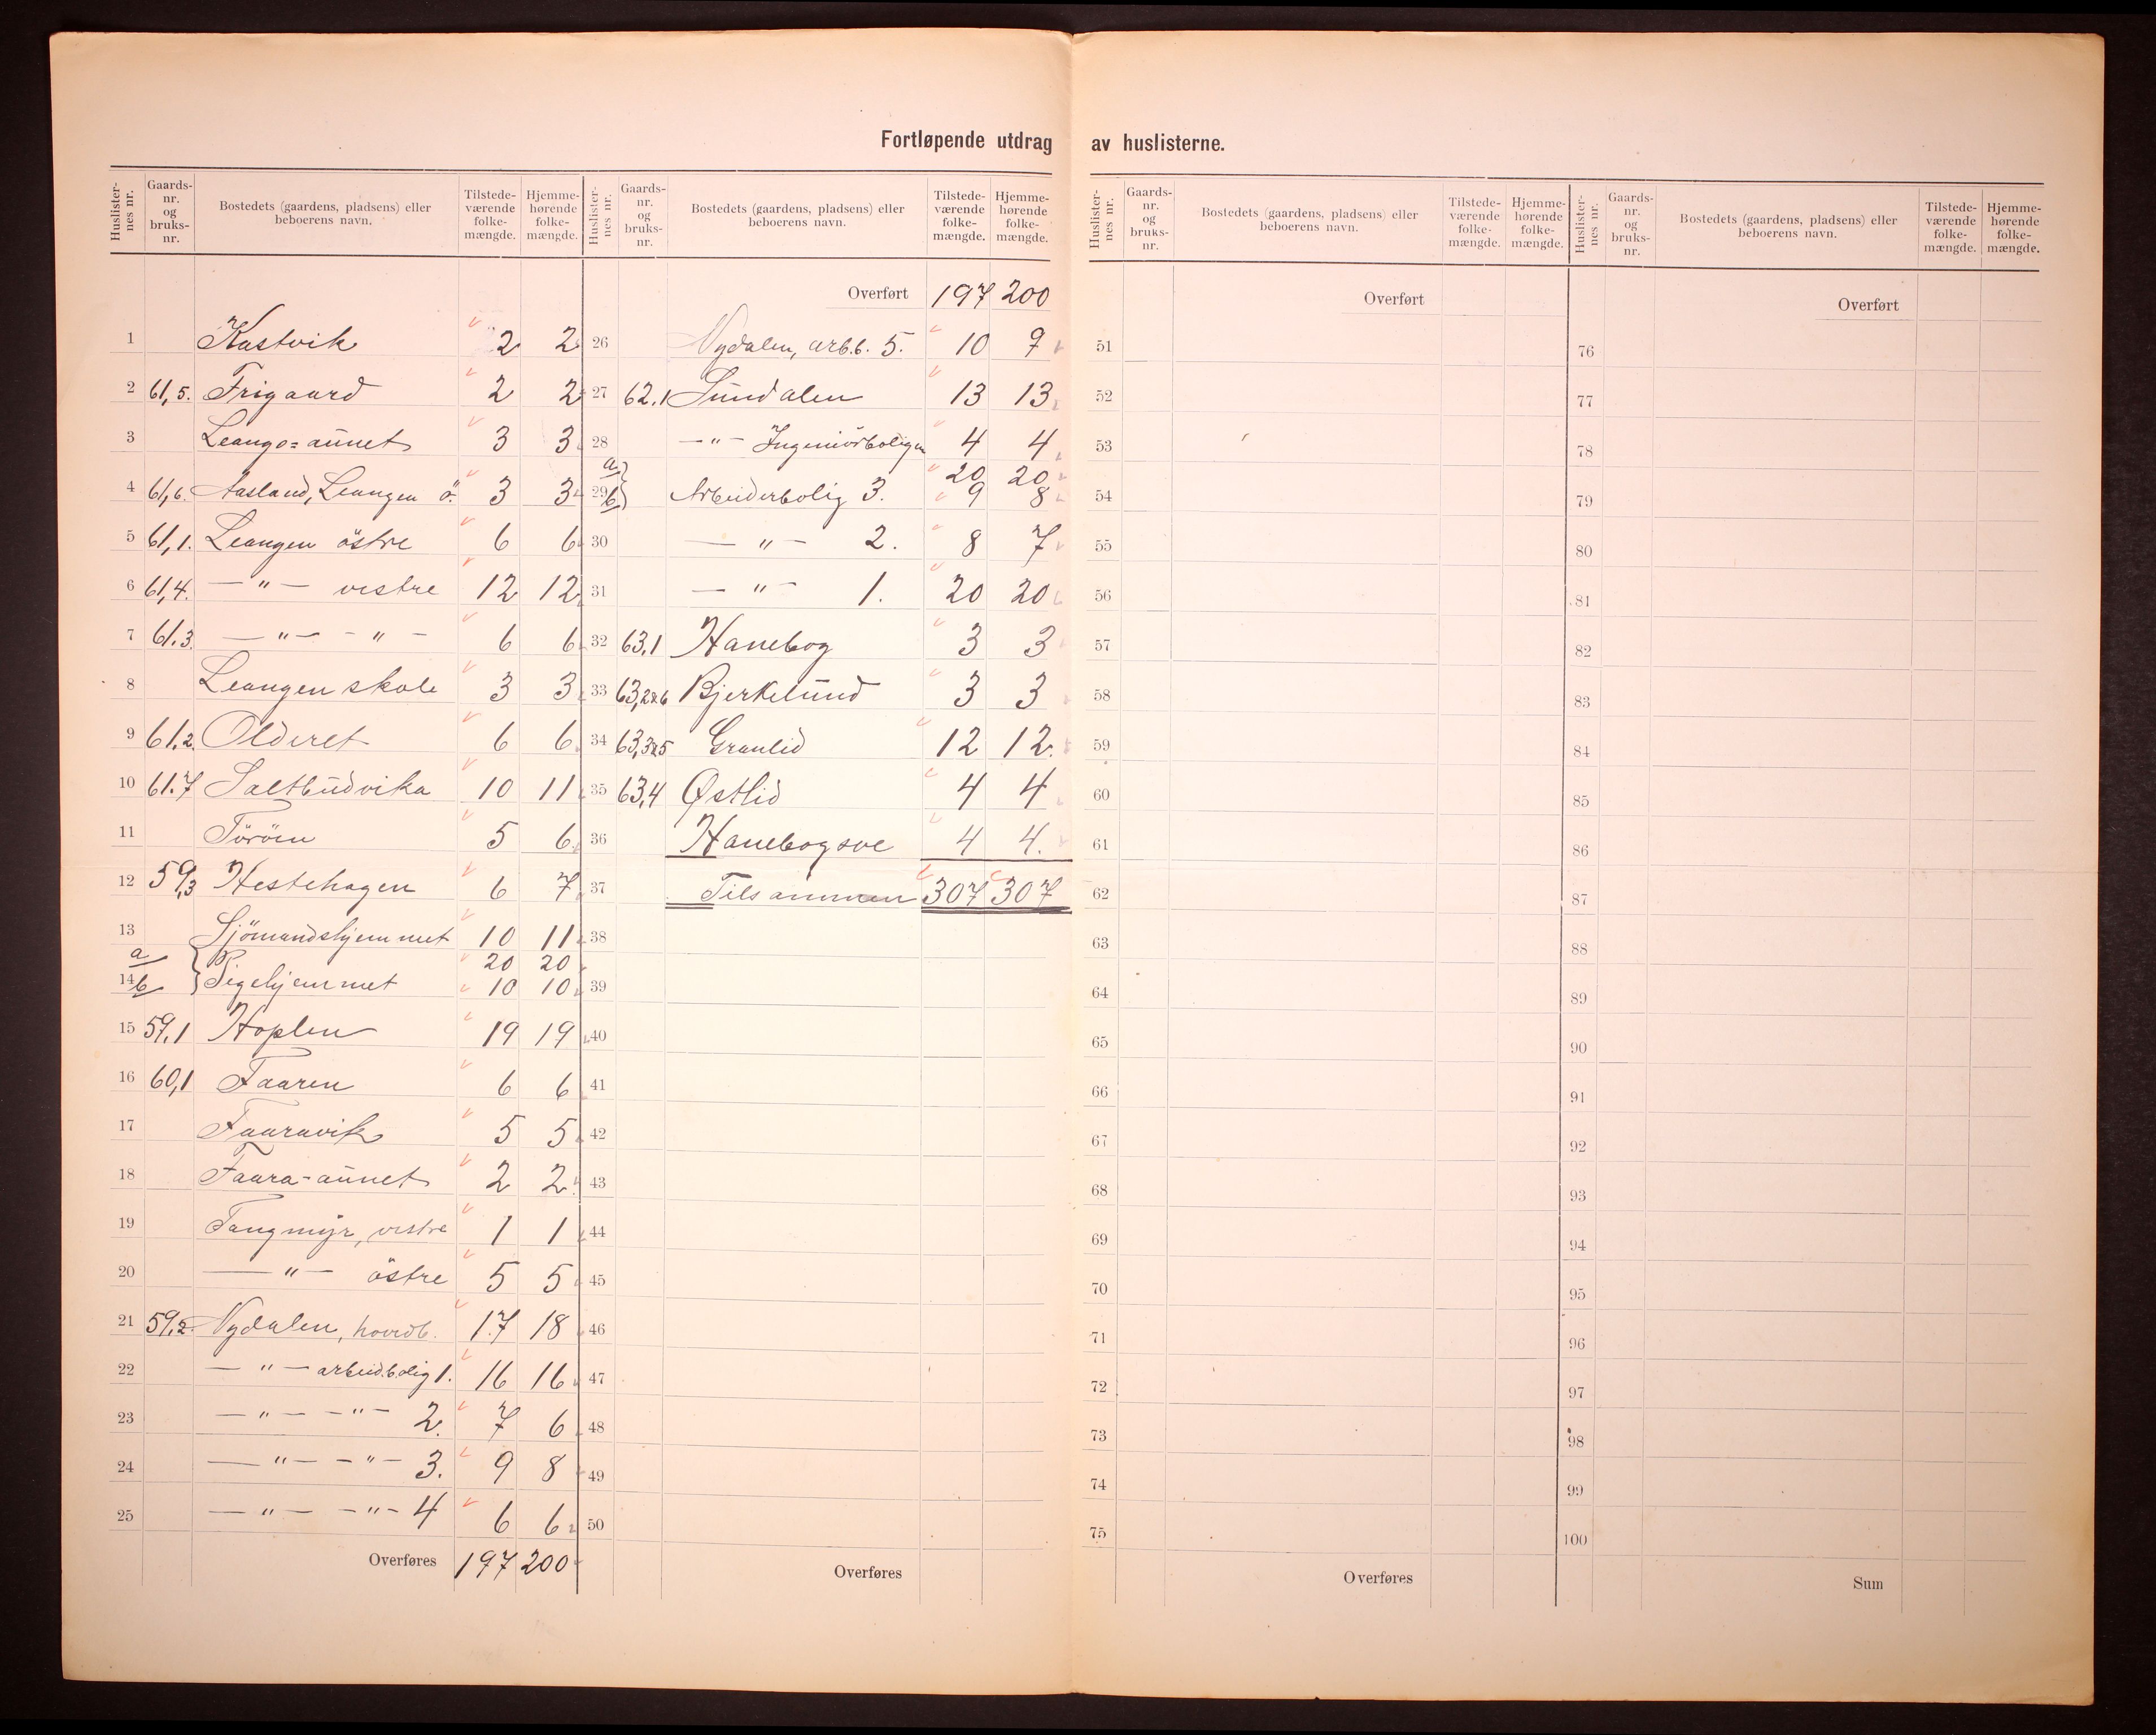 Fortløpende utdrag av huslisterne.
Huslister-nes nr. Gaards-nr. og bruks-nr. Bostedets (gaardens, pladsens) eller beboerens navn. Tilstede-værende folke-mængde. Hjemme-hørende folke-mængde.
1 Kastvik 2 2
2 61,5. Frigaard 2 2
3 Leangs=aunet 3 3
4 61,6. Aasland, Leangen ö. 3 3
5 61,1. Leangen östre 6 6
6 61,4. — " — vestre 12 12
7 61.3. — " — - " - 6 6
8 Leangen skole 3 3
9 61,2. Olderet 6 6
10 61.7 Saltbudvika 10 11
11 Töröen 5 6
12 59,3 Hestehagen 6 7
13 Sjömandshjemmet 10 11
a 20 20
14 b } Pigehjemmet 10 10
15 59.1 Hoplen 19 19
16 60,1 Faaren 6 6
17 Faaravik 5 5
18 Faara-aunet 2 2
19 Tangmyr, vestre 1 1
20 — " — östre 5 5
21 59,2. Nydalen, hovedb. 17 18
22 — " — arbeid.bolig 1. 16 16
23 — " — - " - 2. 7 6
24 — " — - " - 3. 9 8
25 — " — - " - 4 6 6
Overføres 197 200
Huslister-nes nr. Gaards-nr. og bruks-nr. Bostedets (gaardens, pladsens) eller beboerens navn. Tilstede-værende folke-mængde. Hjemme-hørende folke-mængde.
Overført 197 200
26 Nydalen, arb.b. 5. 10 9
27 62.1 Sundalen 13 13
28 — " — Ingeniörboligen 4 4
a 20 20
29 b } Arbeiderbolig 3. 9 8
30 — " — 2. 8 7
31 — " — 1. 20 20
32 63,1 Hanebog 3 3
33 63,2&6 Bjerkelund 3 3
34 63,3&5 Granlid 12 12.
35 63,4 Østlid 4 4
36 Hanebogsve 4 4.
37 Tilsammen 307 307
38
39
40
41
42
43
44
45
46
47
48
49
50
Overføres
Huslister-nes nr. Gaards-nr. og bruks-nr. Bostedets (gaardens, pladsens) eller beboerens navn. Tilstede-værende folke-mængde. Hjemme-hørende folke-mængde.
Overført
51
52
53
54
55
56
57
58
59
60
61
62
63
64
65
66
67
68
69
70
71
72
73
74
75
Overføres
Huslister-nes nr. Gaards-nr. og bruks-nr. Bostedets (gaardens, pladsens) eller beboerens navn. Tilstede-værende folke-mængde. Hjemme-hørende folke-mængde.
Overført
76
77
78
79
80
81
82
83
84
85
86
87
88
89
90
91
92
93
94
95
96
97
98
99
100
Sum